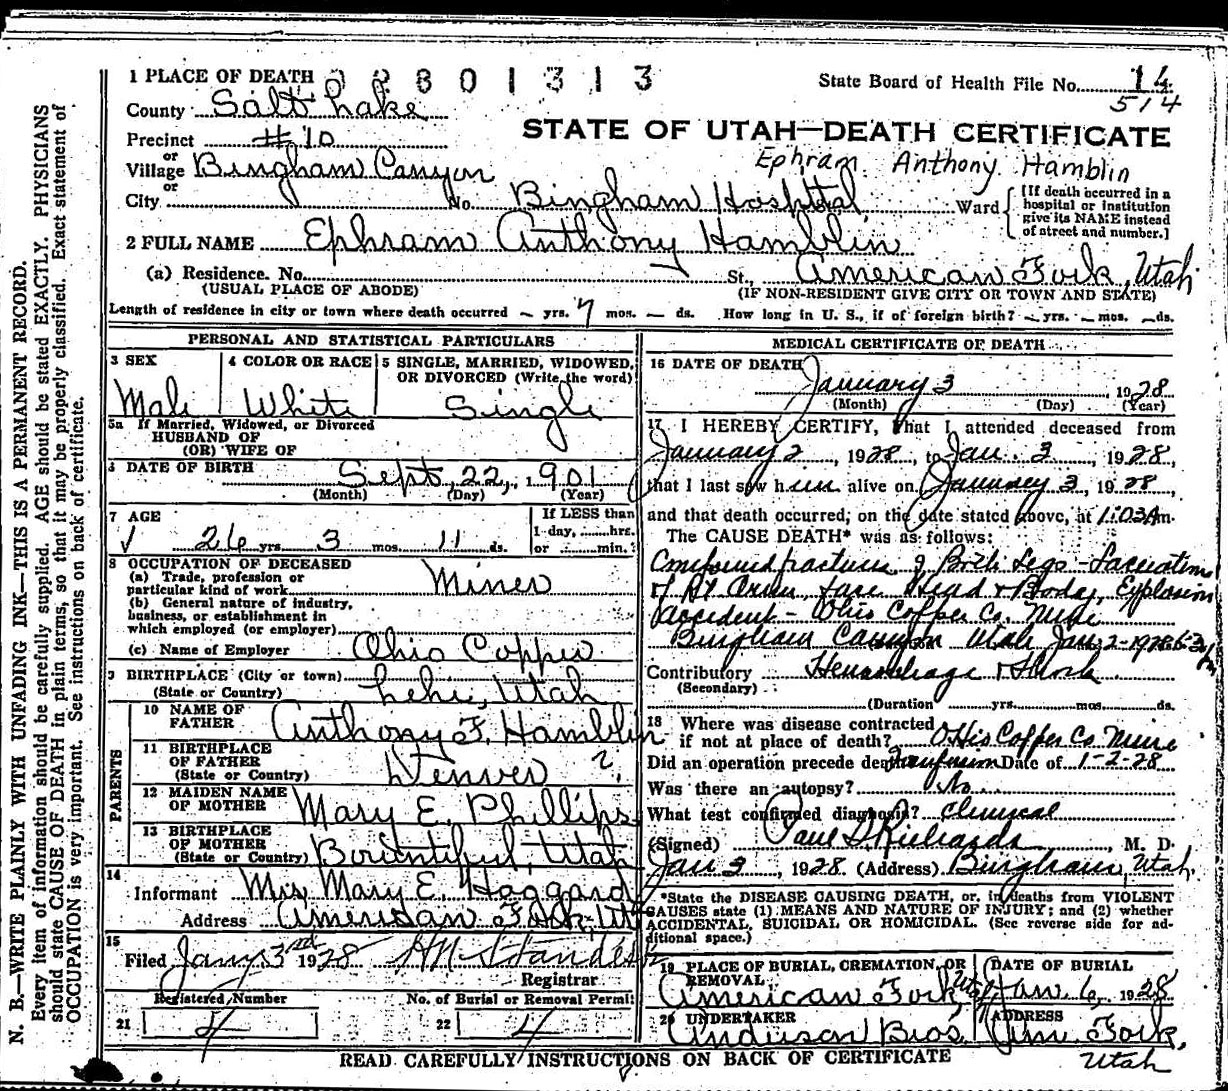 1 PLACE OF DEATH 2 2 8 0 1 3 1 3
State Board of Health File No. 14
514
County Salt Lake
STATE OF UTAH—DEATH CERTIFICATE
Precinct #10
Ephram Anthony Hamblin
or
Village Bingham Canyon
or
City No. Bingham Hospital Ward
[If death occurred in a
hospital or institution
give its NAME instead
of street and number.]
2 FULL NAME Ephram Anthony Hamblin
(a) Residence. No. St., American Fork, Utah
(USUAL PLACE OF ABODE) (IF NON-RESIDENT GIVE CITY OR TOWN AND STATE)
Length of residence in city or town where death occurred – yrs. 7 mos. – ds. How long in U. S., if of foreign birth? – yrs. – mos. – ds.
PERSONAL AND STATISTICAL PARTICULARS
3 SEX
Male
4 COLOR OR RACE
White
5 SINGLE, MARRIED, WIDOWED,
OR DIVORCED (Write the word)
Single
5a If Married, Widowed, or Divorced
HUSBAND OF
(OR) WIFE OF
6 DATE OF BIRTH Sept. 22, 1901
(Month) (Day) (Year)
7 AGE
26 yrs. 3 mos. 11 ds.
If LESS than
1 day, hrs.
or min.
8 OCCUPATION OF DECEASED
(a) Trade, profession or
particular kind of work Miner
(b) General nature of industry,
business, or establishment in
which employed (or employer)
(c) Name of Employer Ohio Copper
9 BIRTHPLACE (City or town)
(State or Country) Lehi, Utah
PARENTS
10 NAME OF
FATHER Anthony F. Hamblin
11 BIRTHPLACE
OF FATHER
(State or Country) Denver ?
12 MAIDEN NAME
OF MOTHER Mary E. Phillips
13 BIRTHPLACE
OF MOTHER
(State or Country) Bountiful, Utah
14
Informant Mrs. Mary E. Haggard
Address American Fork, Ut
15
Filed Jany 3rd 1928
Registrar
Registered Number
21 4
No. of Burial or Removal Permit
22 4
MEDICAL CERTIFICATE OF DEATH
16 DATE OF DEATH
January 3 1928
(Month) (Day) (Year)
17 I HEREBY CERTIFY, that I attended deceased from
January 2, 1928, to Jan. 3, 1928,
that I last saw him alive on January 3, 1928,
and that death occurred, on the date stated above, at 1:03 A m.
The CAUSE DEATH* was as follows:
Compound fracture of Both Legs - Laceration
of Rt Arm, face Head & Body, Explosion
accident - Ohio Copper Co. Mine
Bingham Canyon Utah Jan 2-1928
Contributory Hemorrhage & Shock
(Secondary)
(Duration yrs. mos. ds.
18 Where was disease contracted
if not at place of death? Ohio Copper Co Mine
Did an operation precede death Transfusion Date of 1-2-28
Was there an autopsy? No
What test confirmed diagnosis? Clinical
(Signed) Paul S. Richards, M. D.
Jan 3, 1928 (Address) Bingham, Utah.
*State the DISEASE CAUSING DEATH, or, in deaths from VIOLENT
CAUSES state (1) MEANS AND NATURE OF INJURY; and (2) whether
ACCIDENTAL, SUICIDAL OR HOMICIDAL. (See reverse side for ad-
ditional space.)
19 PLACE OF BURIAL, CREMATION, OR
REMOVAL
American Fork, Utah
DATE OF BURIAL
Jan. 6, 1928
20 UNDERTAKER
Anderson Bros.
ADDRESS
Am. Fork,
Utah
READ CAREFULLY INSTRUCTIONS ON BACK OF CERTIFICATE
N. B.—WRITE PLAINLY WITH UNFADING INK—THIS IS A PERMANENT RECORD.
Every item of information should be carefully supplied. AGE should be stated EXACTLY. PHYSICIANS
should state CAUSE OF DEATH in plain terms, so that it may be properly classified. Exact statement of
OCCUPATION is very important. See instructions on back of certificate.